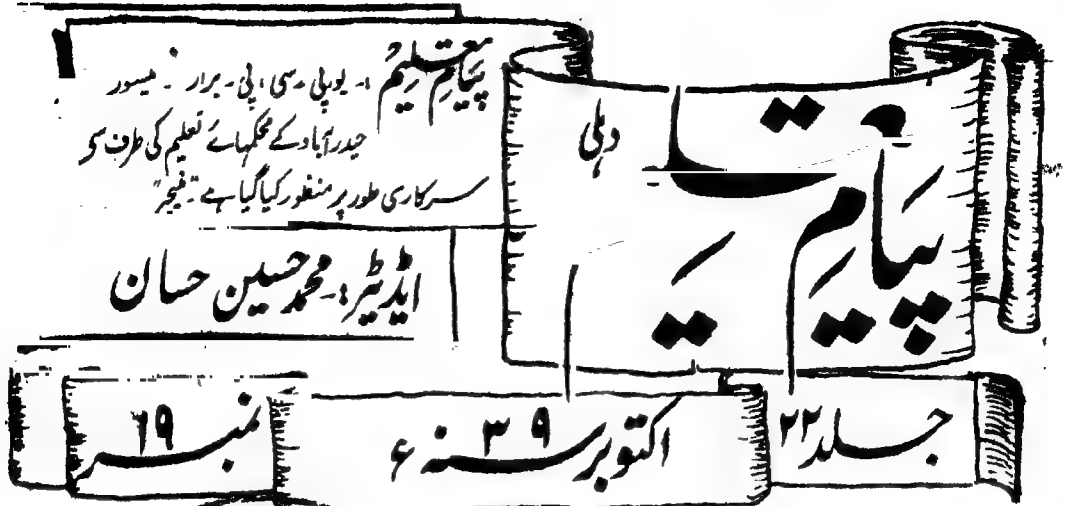 پیام تعلیم
دہلی
پیام تعلیم :۔ یو پی ۔ سی ، پی ۔ برار ۔ میسور
حیدرآباد کے محکمہائے تعلیم کی طرف سے
سرکاری طور پر منظور کیا گیا ہے ۔ "منیجر"
ایڈیٹر :۔ محمد حسین حسان
جلد ۲۲
اکتوبر سنہ ۳۹ ء
نمبر ۱۹